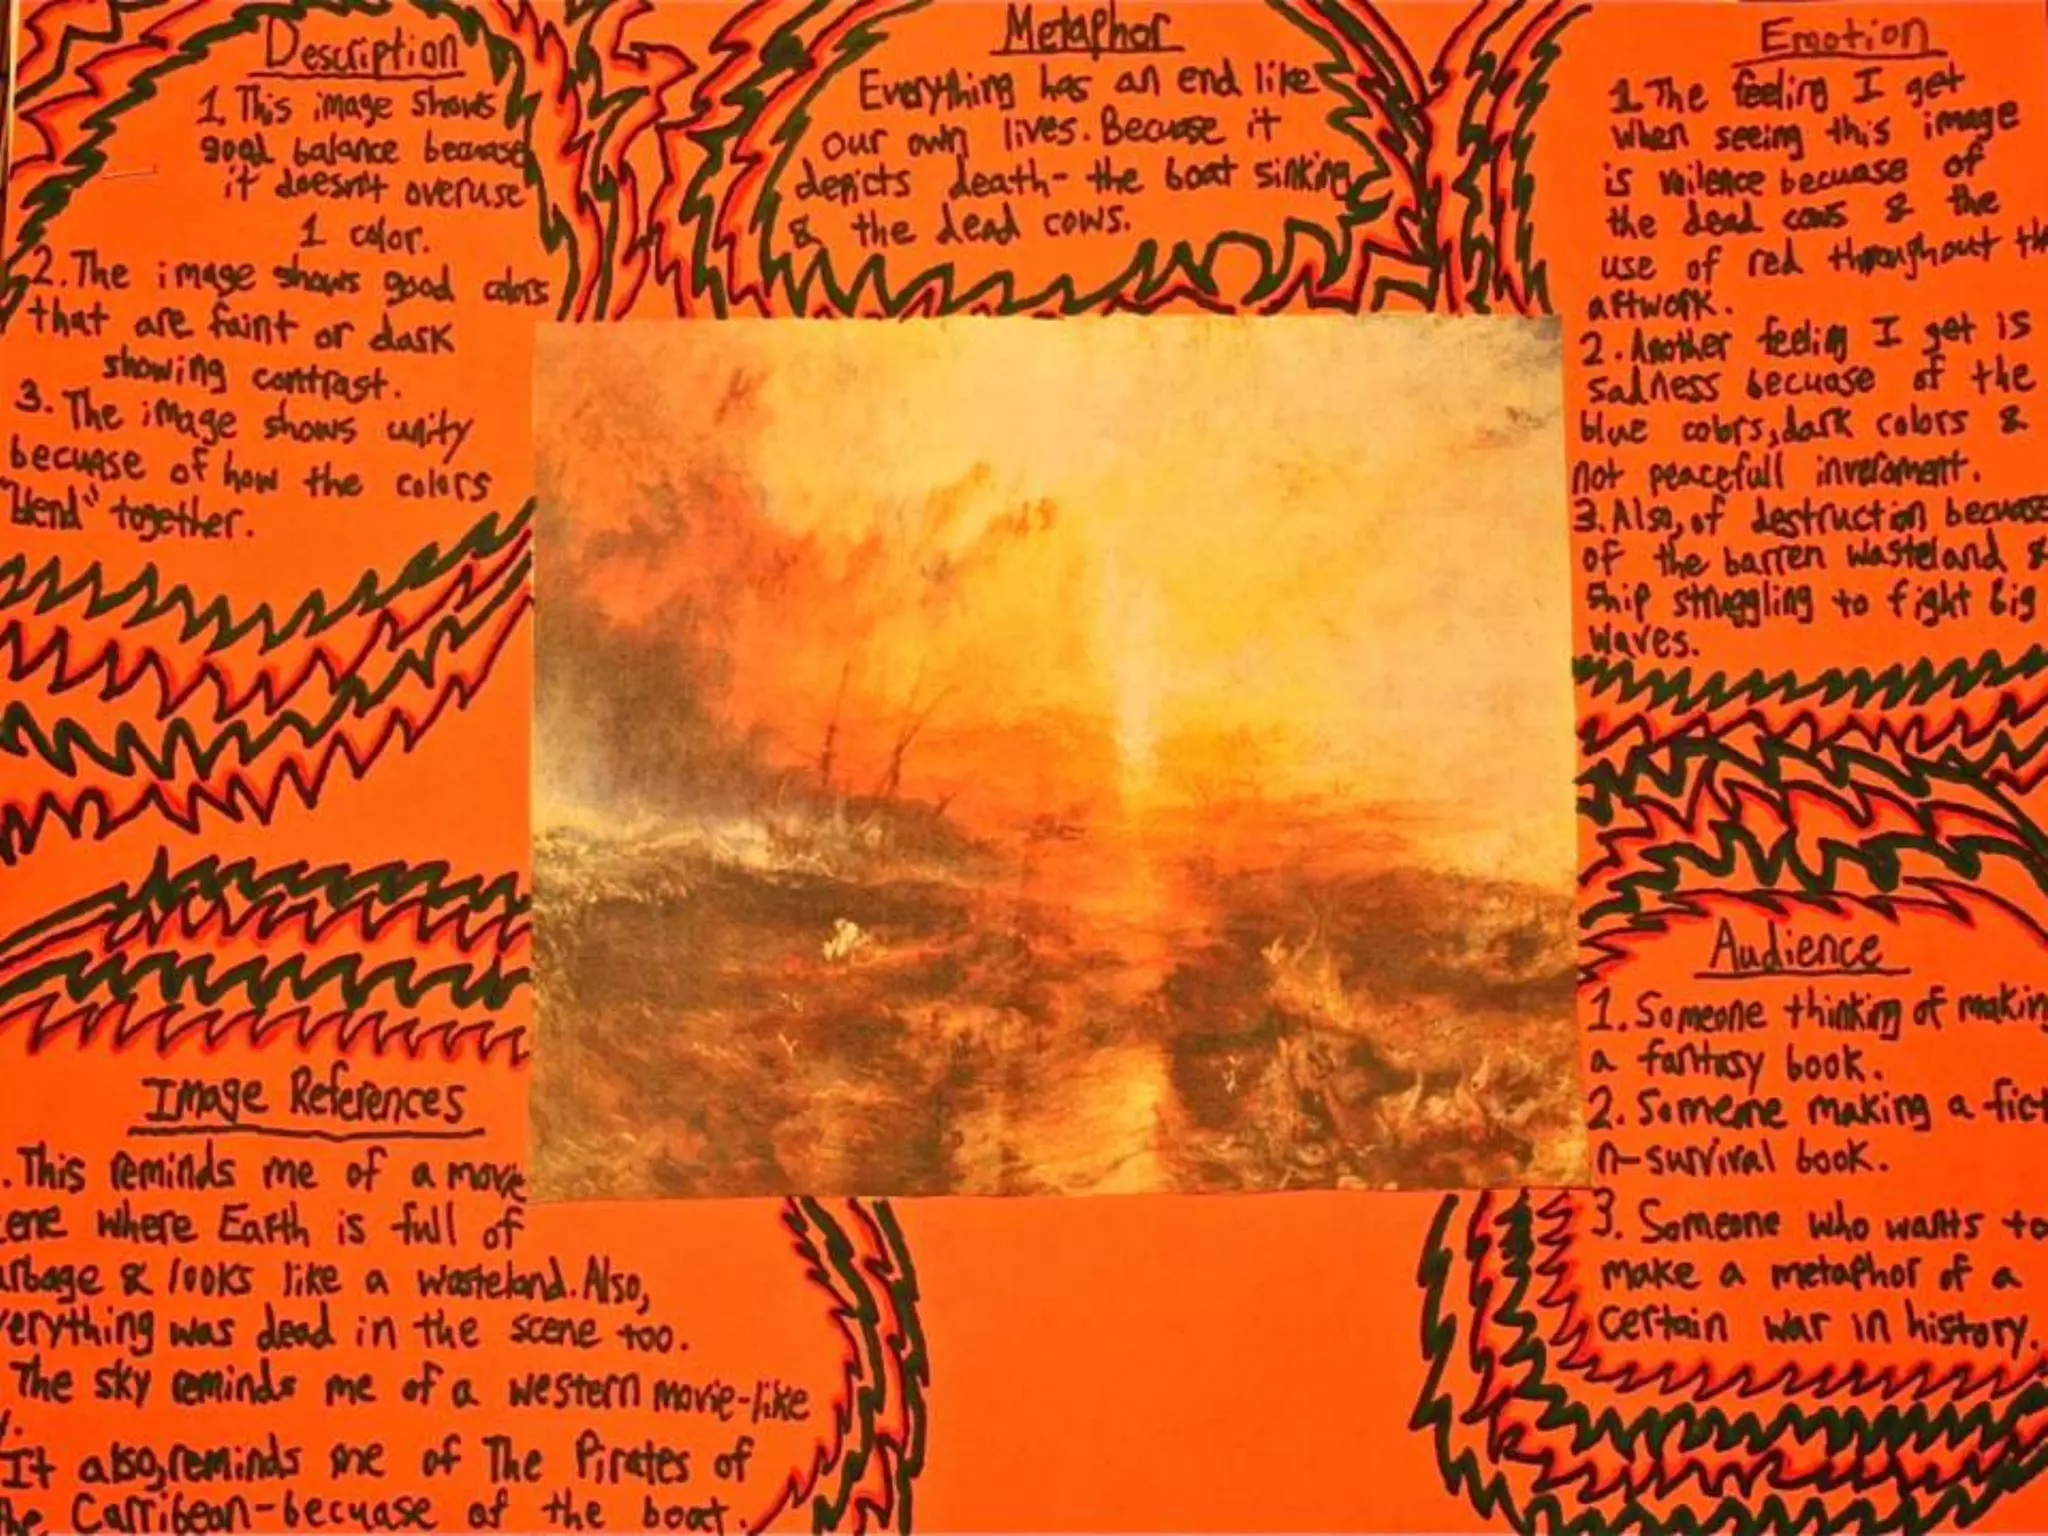 Description
1. This image shows
good balance becuase
it doesn't overuse
1 color.
2. The image shows good colors
that are faint or dark
showing contrast.
3. The image shows unity
becuase of how the colors
"blend" together.
Metaphor
Everything has an end like
our own lives. Becuase it
depicts death- the boat sinking
& the dead cows.
Emotion
1. The feeling I get
when seeing this image
is voilence becuase of
the dead cows & the
use of red throughout th
artwork.
2. Another feeling I get is
sadness becuase of the
blue colors, dark colors &
not peacefull inveroment.
3. Also, of destruction becuase
of the barren wasteland &
ship struggling to fight big
waves.
Image References
. This reminds me of a movie
cene where Earth is full of
arbage & looks like a wasteland. Also,
verything was dead in the scene too.
The sky reminds me of a western movie-like
It also, reminds me of The Pirates of
he Carribean-becuase of the boat.
Audience
1. Someone thinking of making
a fantasy book.
2. Someone making a fict
n-survival book.
3. Someone who wants to
make a metaphor of a
certain war in history.